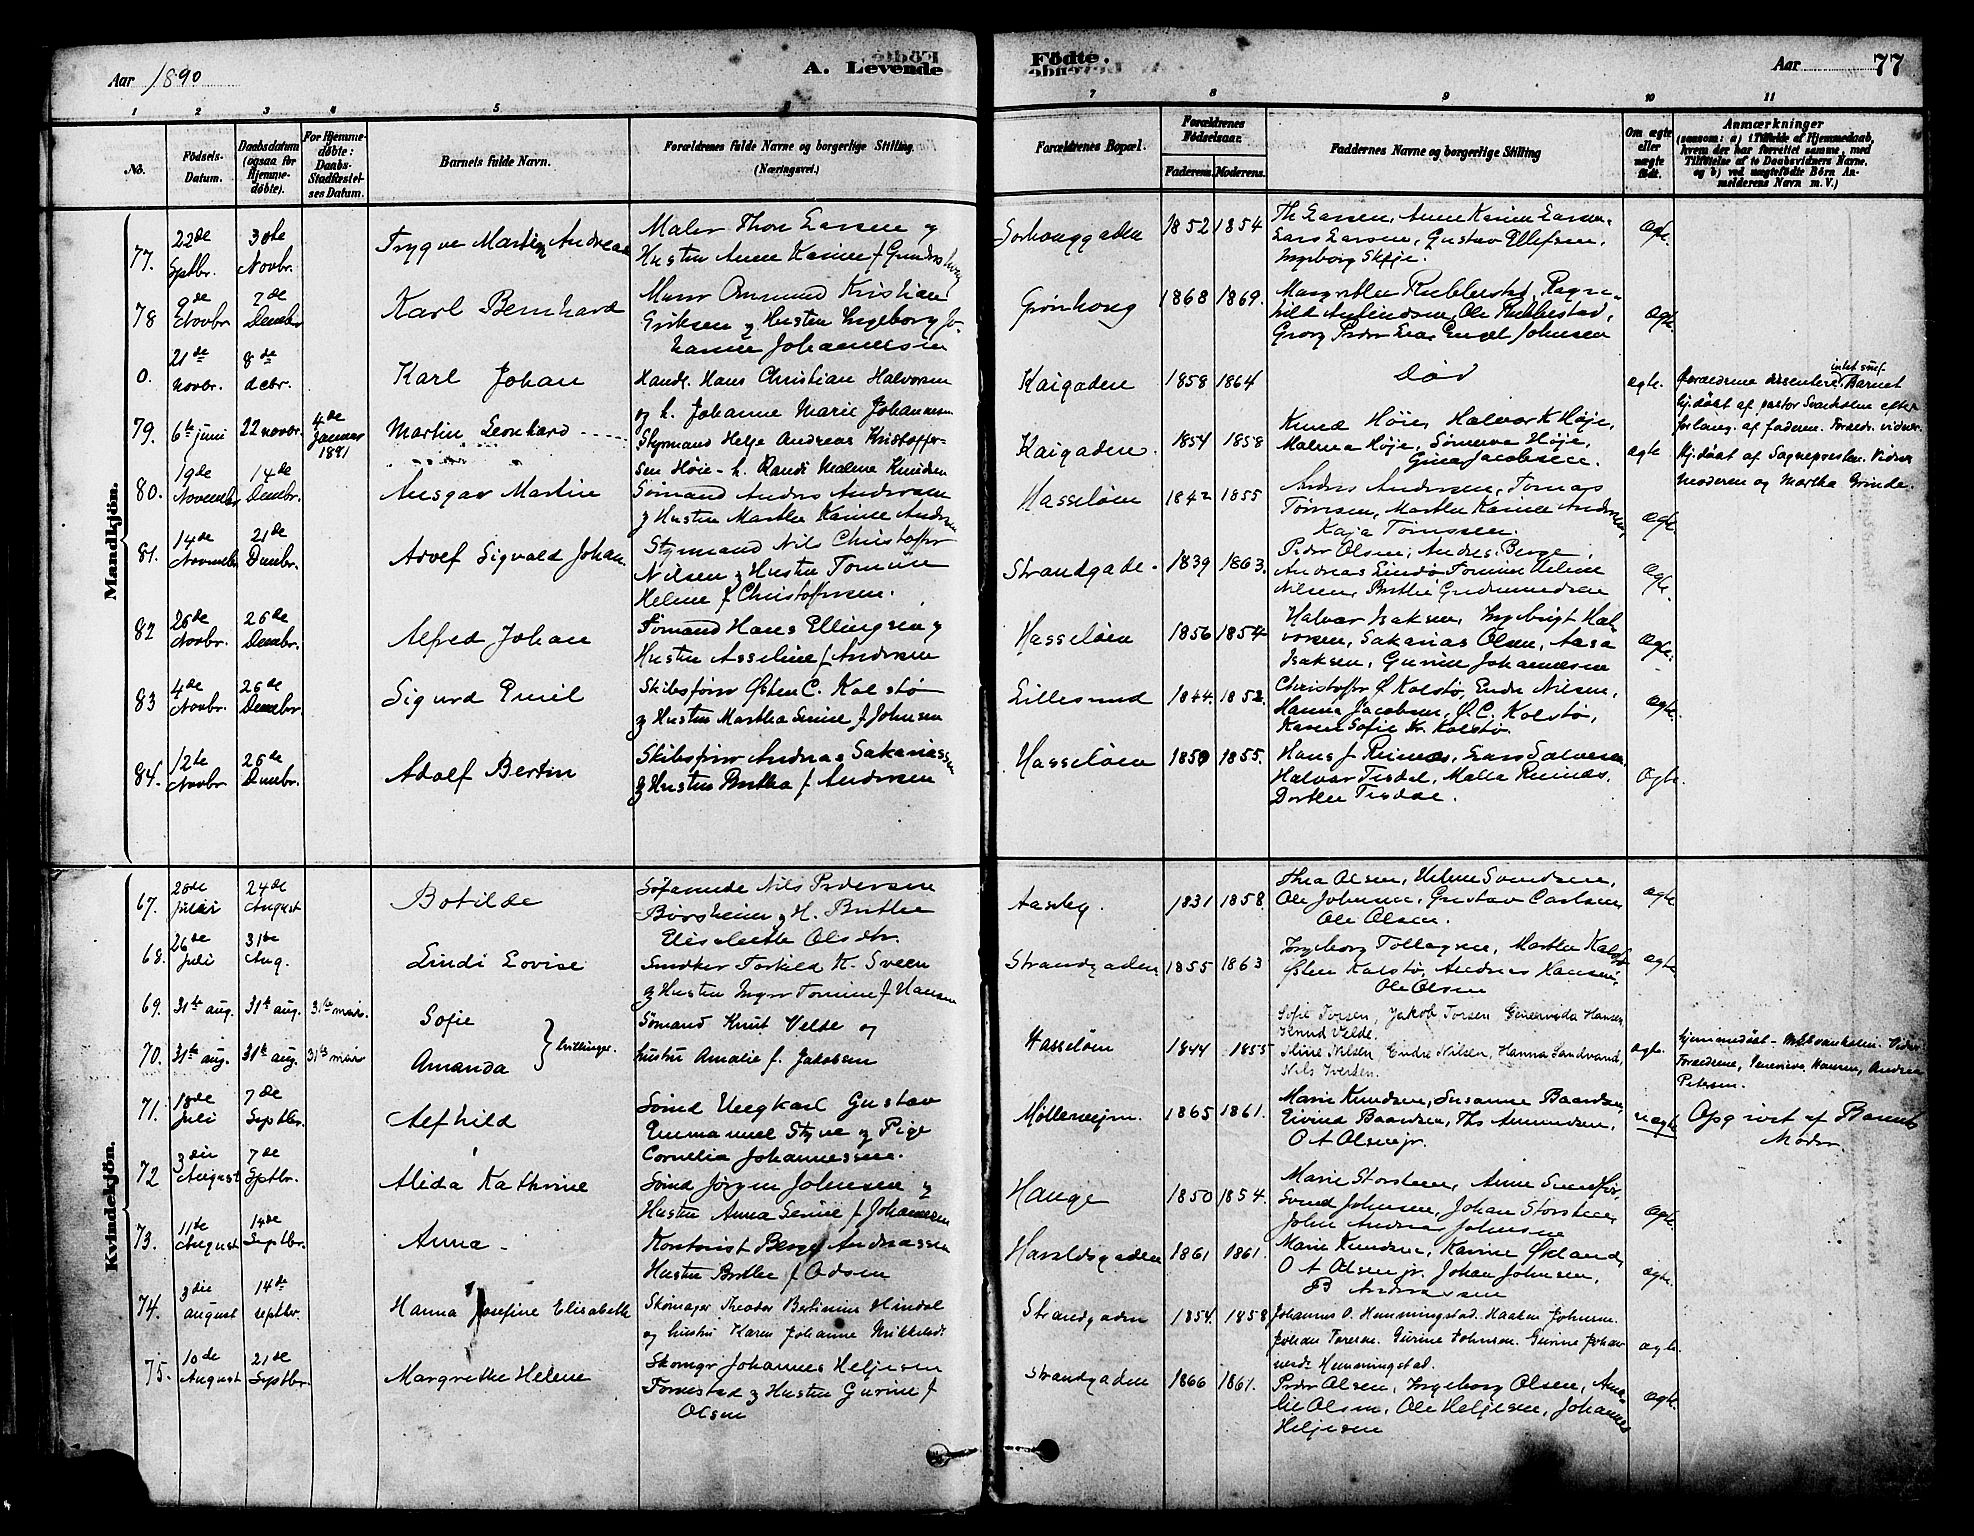 Aar 1890
A. Levende
Fødte.
Aar
77
1 2 3 4 5 6 7 8 9 10 11
No.
Födsels-Datum.
Daabsdatum (ogsaa for Hjemme-döbte).
For Hjemme-döbte: Daabs-Stadfæstel-ses Datum.
Barnets fulde Navn.
Forældrenes fulde Navne og borgerlige Stilling (Næringsvei.)
Forældrenes Bopæl.
Forældrenes Födselsaar.
Faderens. Moderens.
Faddernes Navne og borgerlige Stilling
Om ægte eller uægte födt.
Anmærkninger
(saasom: a) i Tilfælde af Hjemmedaab, hvem der har forrettet samme, med Tilföielse af to Daabsvidners Navne. og b) ved uægtefödte Börn An-melderens Navn m. V.)
Mandkjön.
77. 22de Septbr. 30te Novbr. Trygve Martin Andreas
Maler Thore Larsen og
Hustru Anne Karine f Gundershoug
Sørhouggaden 1852 1854
Th Larsen, Anne Karine Larsen
Lars Larsen, Gustav Ellefsen,
Ingeborg Skeje.
ægte.
78 9de Novbr 7de Decmbr Karl Bernhard
Murer Omund Kristian
Eriksen og Hustru Ingeborg Jo-
hanne Johannessen
Grønhoug 1868 1869.
ægte.
0. 21de novbr. 8de decbr. Karl Johan
Handl. Hans Christian Halvorsen
og h. Johanne Marie Johannesen
Kaigaden 1858 1864
Død
ægte.
Forældrene dissentere, intet surf. Barnet
hj.døbt af pastor Svanholm efter
forlang. af faderen. Forældr. vidner.
79. 6te juni 22 novbr. 4de Januar 1891 Martin Leonhard
Styrmand Helje Andreas Kristoffer-
sen Høie - h. Randi Malene Knudsen
Kaigaden. 1854 1858
Knud Høie, Halvor K Høje,
Malena Høje, Sønneva Høje,
Gina Jacobsen.
ægte.
Hj.døbt af Sognepresten. Vidner
moderen og Martha Grinde.
80. 19de November 14de Decmbr Ansgar Martin
Sømand Anders Andersen
og Hustru Marthe Karine Andersen
Hasseløen 1842 1855
Anders Andersen, Tomas
Tønnesen, Marthe Karine Andersen,
Kaja Tønnesen.
ægte.
81. 14de Novembr 21de Decmbr. Adolf Sigvald Johan
Styrmand Nils Christoffer
Nilsen og Hustru Tomine
Helene f Christoffersen.
Strandgade. 1839 1863.
Peder Olsen, Andreas Berge,
Andreas Lindø Tomine Helene
Nilsen, Berthe Gudmundsen
ægte.
82 26de Novbr. 26de Decmbr. Alfred Johan
Sømand Hans Ellingsen og
Hustru Asseline f Andersen
Hasseløen 1856 1854
Halvor Isaksen, Ingebrigt Hal-
vorsen, Sakarias Olsen, Aasa
Isaksen, Gurine Johannesen
ægte.
83 4de Novbr. 26de Decmbr Sigurd Emil
Skibsfører Østen C. Kolstø
og Hustru Martha Serine f Johnsen
Lillesund 1844. 1852.
Christoffer Ø Kolstø, Endre Nilsen,
Hanna Jacobsen, Ø.C. Kolstø,
Karen Sofie Kr. Kolstø.
ægte.
84. 12te Novbr. 26de Decmbr. Adolf Bertin
Skibsfører Andreas Sakariassen
og Hustru Bertha f Andersen
Hasseløen 1850 1855.
Hans J Reines, Lars Salvesen
Halvor Tisdal, Malla Reines,
Dorthea Tisdal.
Ægte.
Kvindekjön.
67. 20de Juli 24de August Botilde
Søfarende Nils Pedersen
Børsheim og H. Berthe
Elisabeth Olsdtr.
Aaseby. 1831 1858.
Thea Olsen, Helene Svendsen,
Ole Johnsen, Gustav Carlsen
Ole Olsen.
ægte
68. 26de Juli 31te Aug. Lindi Lovise
Smedker Torkild K. Sveen
og Hustru Inger Tomine f Hansen
Strandgaden 1855 1863
Ingeborg Tollagsen, Marthe Kolstø
Østen Kolstø, Andreas Hansen,
Ole Olsen
ægte
69. 31te aug. 31te aug. 31te mai. Sofie
70. 31te aug. 31te aug. 31te mai Amanda
tvillinger.
Sømand Knut Velde og
hustru Amalie f. Jakobsen
Hasseløen 1844 1855
Sofie Torsen, Jakob Torsen Generida Hansen
Knud Velde.
Stine Nilsen, Endre Nilsen, Hanna Sandvand,
Nils Iversen.
ægte.
Hjemmedøbt
Forældrene, Hansen, Andrea
Petersen.
71. 18de Juli 7de Septbr. Alfhild
Sømd Ungkarl Gustav
Emmanuel Styve og Pige
Cornelia Johannessen.
Møllerveien. 1865 1861.
Marie Knudsen, Susanne Baardsen,
Eivind Baardsen, Ths Amundsen,
O A Olsen jr.
uægte
Opgivet af Barnets
Moder
72 3die August 7de Septbr. Alida Kathrine
Sømd Jørgen Johnsen og
Hustru Anna Serine f Johannesen
Hauge 1850 1854.
Marie Storsteen, Anne
Svend Johnsen, Johan Storsteen,
John Andreas Johnsen
ægte.
73. 11te August 14de Septbr. Anna
Kontorist Berge Andreassen
Hustru Berthe f Odsen
Haraldsgaden 1861 1861.
Marie Knudsen, Karine Økland,
O A Olsen jr. Johan Johnsen,
B Andreassen
ægte.
74. 3die august 14de septbr. Hanna Josefine Elisabeth
Skomager Theodor Bertinius Hindal
og hustru Karen Johanne Mikkelsdtr
Strandgaden 1854. 1858
Johannes O. Hemmingstad. Haaken Johnsen
Johan Toresen. Gurine Johnsen. Gurine Johan-
nesdr Hemmingstad.
ægte.
75. 10de August 21de Septbr. Margrethe Helene
Skomgr Johannes Heljesen
Fornestad og Hustru Gurine f
Olsen
Strandgaden 1866 1861.
Peder Olsen, Ingeborg Olsen, Ama-
lie Olsen, Ole Heljesen, Johannes
Heljesen
ægte.